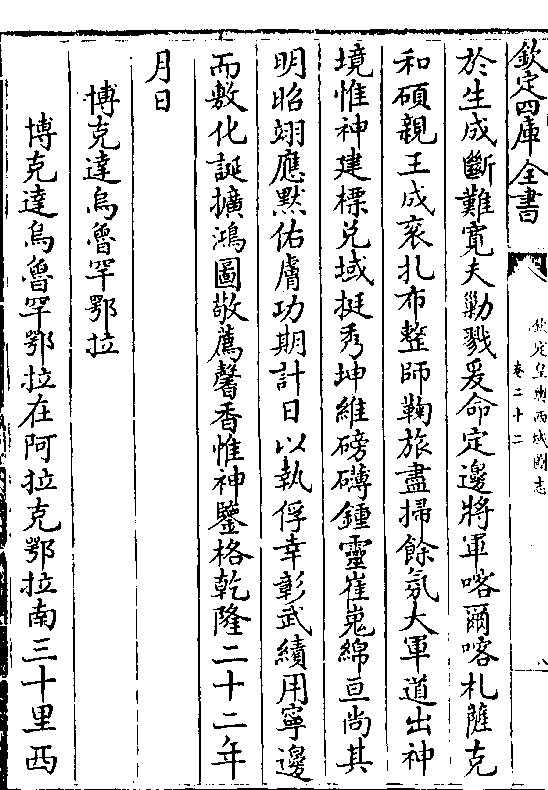 欽定四庫全書
欽定皇輿西域圖志
卷二十二
八
於生成斷難寛夫勦戮爰命定邊將軍喀爾喀札薩克
和碩親王成衮扎布整師鞠旅盡掃餘氛大軍道出神
境惟神建標兌域挺秀坤維磅礴鍾靈崔嵬綿亘尚其
明昭翊應默佑膚功期計日以執俘幸彰武績用寧邊
而敷化誕擴鴻圖敬薦馨香惟神鑒格乾隆二十二年
月日
博克達烏魯罕鄂拉
博克達烏魯罕鄂拉在阿拉克鄂拉南三十里西